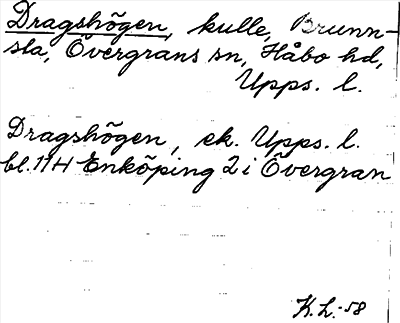 Dragshögen, kulle, Brunn-
sta, Övergrans sn, Håbo hd,
Upps. l.
Dragshögen, ek. Upps. l.
bl. 11H Enköping 2 i Övergran
K.L.-58